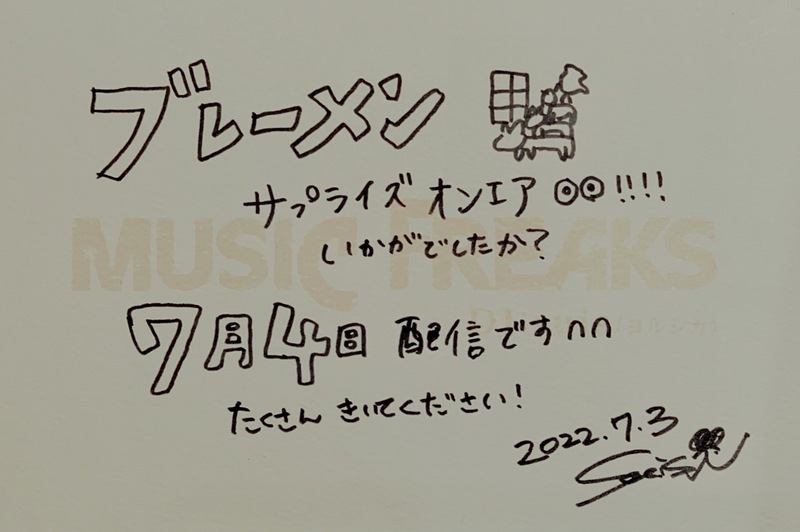 ブレーメン
サプライズ オンエア ◎◎!!!!
MUSIC FREAKS
いかがでしたか?
(ヨルシカ)
7月4日 配信です∩∩
たくさん きいてください!
2022.7.3